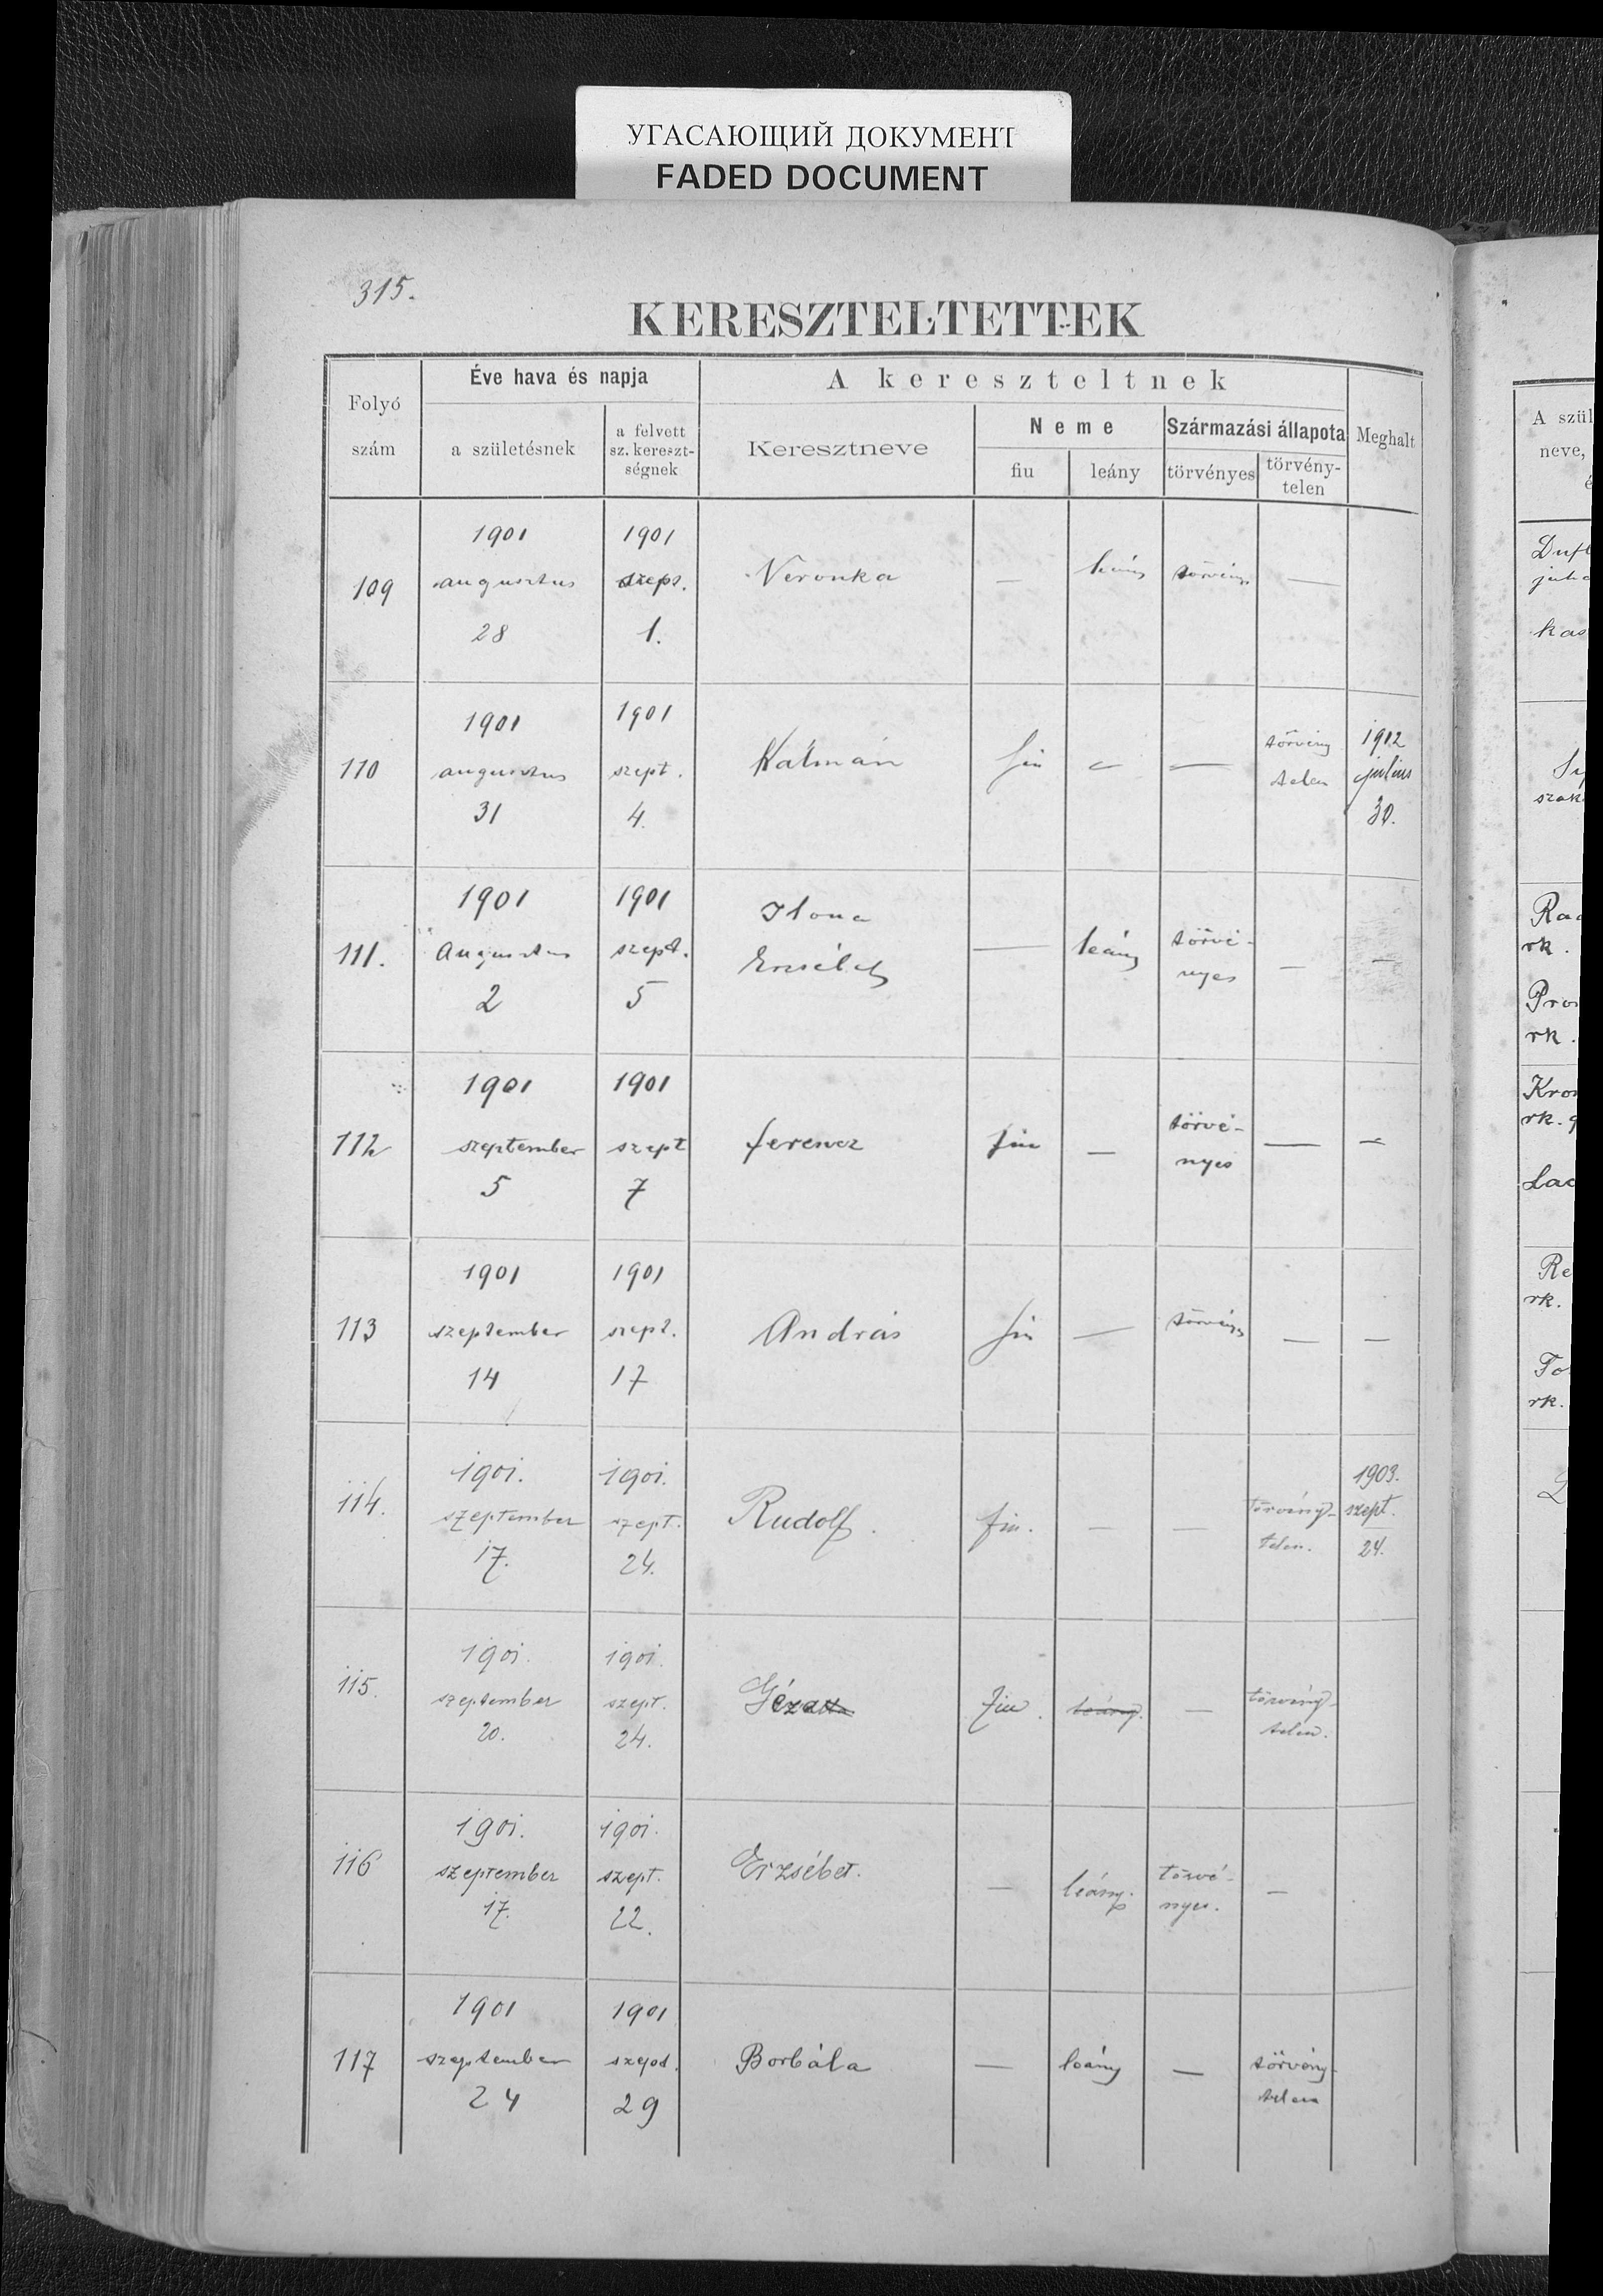 УГАСАЮЩИЙ ДОКУМЕНТ
FADED DOCUMENT
315.
KERESZTELTETTEK
Folyó
szám
Éve hava és napja
a születésnek
a felvett
sz. kereszt-
ségnek
A kereszteltnek
Keresztneve
Neme
fiu
leány
Származási állapota
törvényes
törvény-
telen
Meghalt
109
1901
augusztus
28
1901
szept.
1.
Veronka
—
leány
törvényes
—
110
1901
augusztus
31
1901
szept.
4.
Kálmán
fiu
—
—
törvény
telen
1902
julius
30.
111.
1901
Augusztus
2
1901
szept.
5
Ilona
Erzsébet
—
leány
törvé-
nyes
—
—
112
1901
szeptember
5
1901
szept
7
ferencz
fiu
—
törvé-
nyes
—
—
113
1901
szeptember
14
1901
szept.
17
András
fiu
—
törvényes
—
—
114.
1901.
szeptember
17.
1901.
szept.
24.
Rudolf.
fiu.
—
—
törvény-
telen.
1903.
szept.
24.
115.
1901.
szeptember
20.
1901.
szept.
24.
Géza
fiu.
leány.
—
törvény-
telen.
116
1901.
szeptember
17.
1901.
szept.
22.
Erzsébet.
—
leány.
törvé-
nyes.
—
117
1901
szeptember
24
1901
szept.
29
Borbála
—
leány
—
törvény-
telen
A szül
neve,
é
kas
szak
Rad
rk.
rk.
rk.
Lac
Re
rk.
rk.